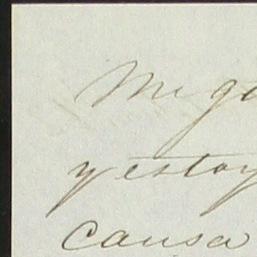 Me ga
y estoy
causa